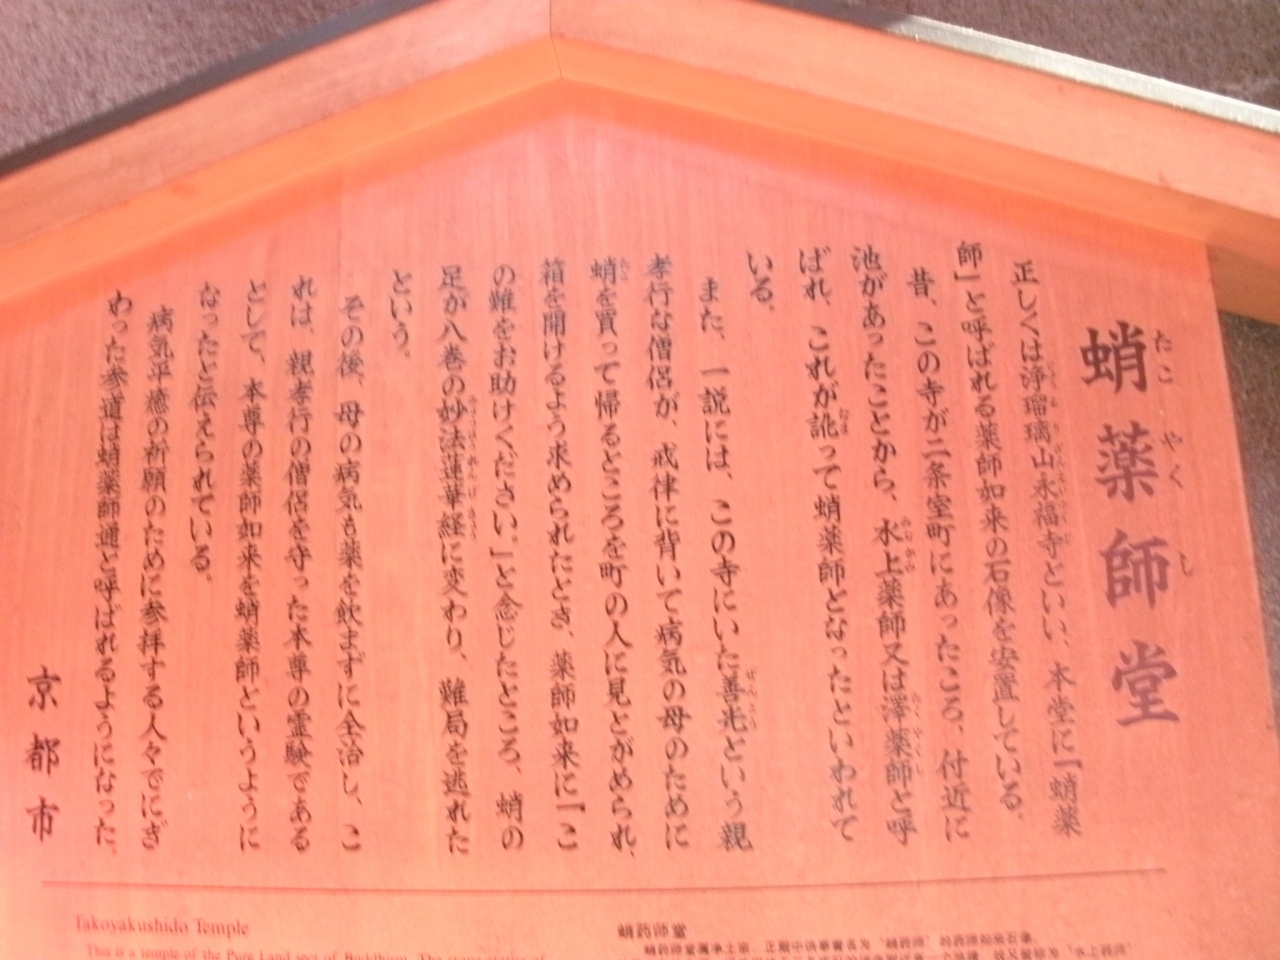 蛸薬師堂
正しくは浄瑠璃山永福寺といい、本堂に「蛸薬
師」と呼ばれる薬師如来の石像を安置している。
昔、この寺が二条室町にあったころ、付近に
池があったことから、水上薬師又は澤薬師と呼
ばれ、これが訛って蛸薬師となったといわれて
いる。
また、一説には、この寺にいた善光という親
孝行な僧侶が、戒律に背いて病気の母のために
蛸を買って帰るところを町の人に見とがめられ、
箱を開けるよう求められたとき、薬師如来に「こ
の難をお助けください。」と念じたところ、蛸の
足が八巻の妙法蓮華経に変わり、難局を逃れた
という。
その後、母の病気も薬を飲まずに全治し、こ
れは、親孝行の僧侶を守った本尊の霊験である
として、本尊の薬師如来を蛸薬師というように
なったと伝えられている。
病気平癒の祈願のために参拝する人々でにぎ
わった参道は蛸薬師通と呼ばれるようになった。
京都市
Takoyakushido Temple
This is a temple of the Pure Land sect of Buddhism. The stone statue of
蛸药师堂